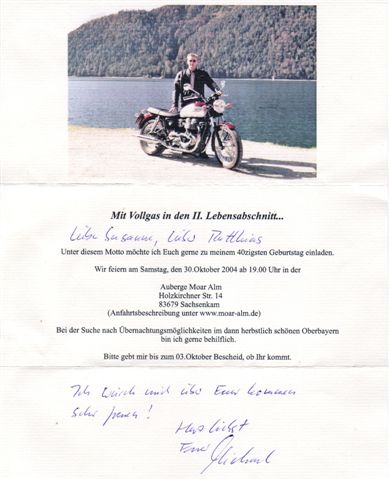 Mit Vollgas in den II. Lebensabschnitt...
Liebe Susanne, lieber Matthias
Unter diesem Motto möchte ich Euch gerne zu meinem 40zigsten Geburtstag einladen.
Wir feiern am Samstag, den 30.Oktober 2004 ab 19.00 Uhr in der
Auberge Moar Alm
Holzkirchner Str. 14
83679 Sachsenkam
(Anfahrtsbeschreibung unter www.moar-alm.de)
Bei der Suche nach Übernachtungsmöglichkeiten im dann herbstlich schönen Oberbayern
bin ich gerne behilflich.
Bitte gebt mir bis zum 03.Oktober Bescheid, ob Ihr kommt.
Ich würde mich über Euer kommen
sehr freuen!
Herzlichst
Euer Michael